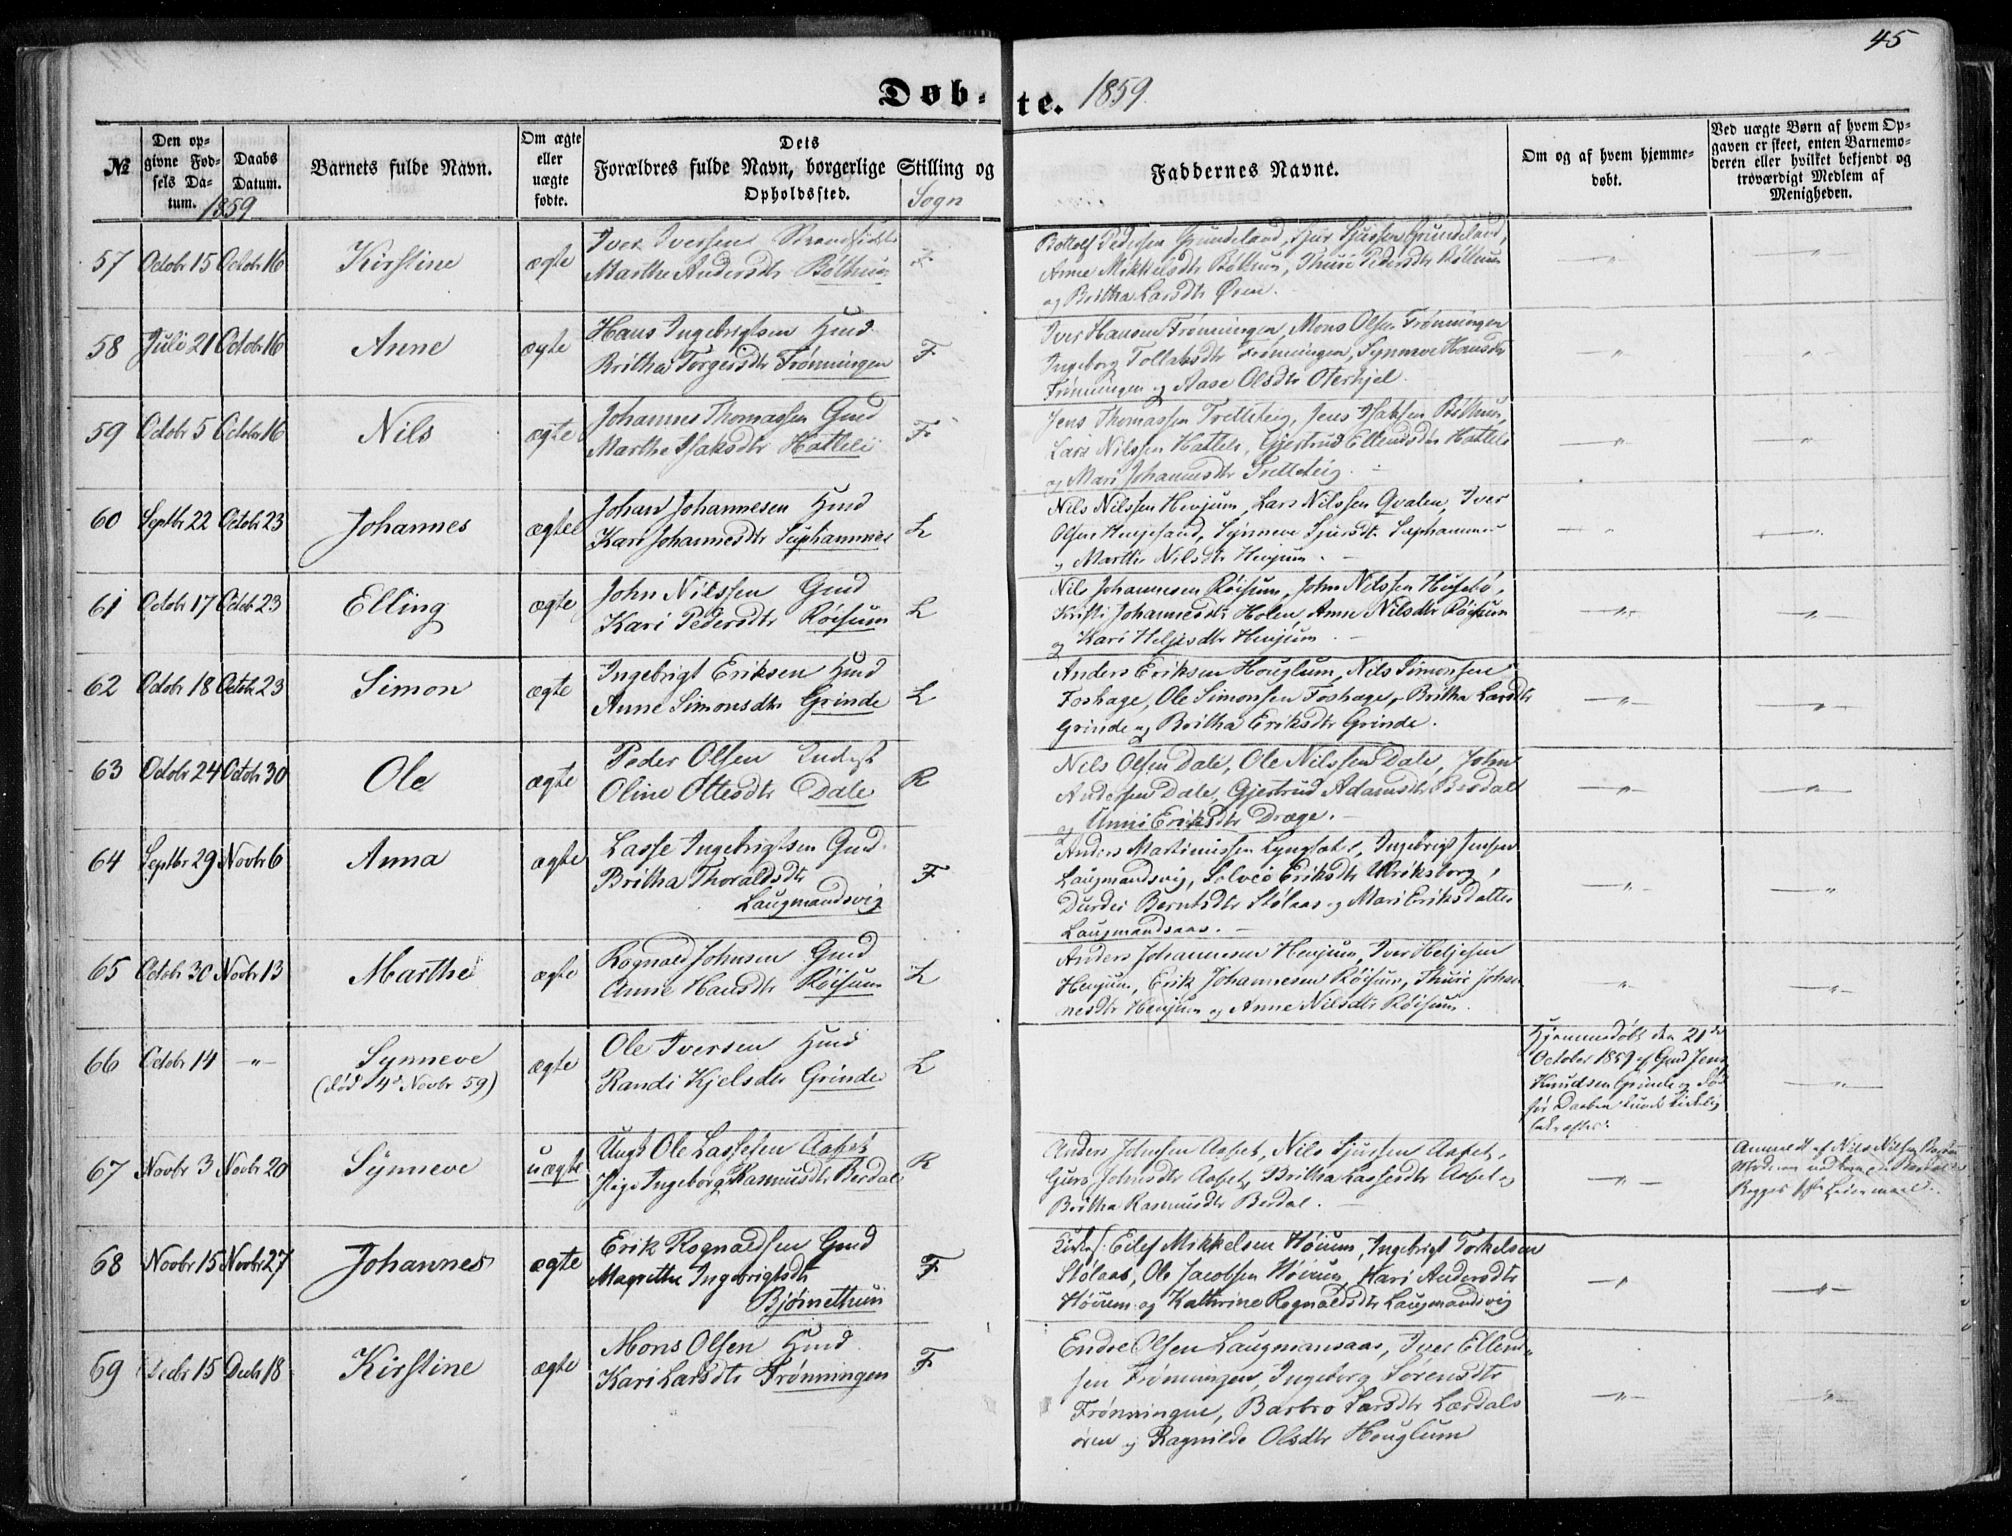 45
Døb-te. 1859
№
Den op-
givne Fød-
sels Da-
tum.
1859
Daabs
Datum.
Barnets fulde Navn.
Om ægte
eller
uægte
fødte.
Dets
Forældres fulde Navn, borgerlige Stilling og
Opholdssted.
Sogn
Faddernes Navne.
Om og af hvem hjemme-
døbt.
Ved uægte Børn af hvem Op-
gaven er skeet, enten Barnemo-
deren eller hvilket bekjendt og
troværdigt Medlem af
Menigheden.
57 Octobr 15 Octobr 16 Kirstine ægte
Iver Iversen Strandsidder
Marthe Andersdtr Bøthun
F
Bottolf Pedersen Grundeland, Sjur Sjursen Grundeland,
Anne Mikkelsdtr Bøthun, Thuri Pedersdtr Bøthun
og Britha Larsdtr Øren.
58 Juli 21 Octobr 16 Anne ægte
Hans Ingebrigtsen Hmd
Britha Torgersdtr Frønningen
F
Iver Hansen Frønningen, Mons Olsen Frønningen
Ingeborg Tollaksdtr Frønningen, Synneve Hansdtr
Frønningen og Aase Olsdtr Oterhjel.
59 Octobr 5 Octobr 16 Nils ægte
Johannes Thomassen Gmd
Marthe Isaksdtr Hatleli
F
Jens Thomassen Tretteteig, Jens Isaksen Bøthun,
Lars Nilssen Hatleli, Gjertrud Ellendsdtr Hatleli
og Mari Johannesdtr Tretteteig.
60 Septbr 22 Octobr 23 Johannes ægte
Johan Johannesen Hmd
Kari Johannesdtr Suphammer
L
Nils Nilssen Henjum, Lars Nilssen Qvalen, Iver
Olsen Henjesand, Synneve Sjursdtr Suphammer
og Marthe Nilsdtr Henjum.
61 Octobr 17 Octobr 23 Elling ægte
John Nilssen Gmd
Kari Pedersdtr Røisum
L
Nils Johannesen Røisum, John Nilssen Husebø,
Kristi Johannesdtr Holen, Anne Nilsdtr Røisum
og Kari Heljesdtr Henjum.
62 Octobr 18 Octobr 23 Simon ægte
Ingebrigt Eriksen Hmd
Anne Simonsdtr Grinde
L
Anders Eriksen Houglum, Nils Simonsen
Foshage, Ole Simonsen Foshage, Britha Larsdtr
Grinde og Britha Eriksdtr Grinde.
63 Octobr 24 Octobr 30 Ole ægte
Peder Olsen Inderst
Oline Ottesdtr Dale
R
Nils Olsen Dale, Ole Nilssen Dale, John
Andersen Dale, Gjertrud Adamsdtr Berdal
og Anne Eriksdtr Dræge.
64 Septbr 29 Novbr 6 Anna ægte
Lasse Ingebrigtsen Gmd.
Britha Thoraldsdtr
Laugmandsvig
F
Anders Martinussen Lyngsæt, Ingebrigt Jensen
Laugmandsvig, Solvei Eriksdtr Ulriksborg,
Durdei Berntsdtr Stølaas og Mari Eriksdatter
Laugmandsaas.
65 Octobr 30 Novbr 13 Marthe ægte
Rognald Johnsen Gmd
Anne Hansdtr Røisum
L
Anders Johannesen Henjum, Iver Heljesen
Henjum, Erik Johannesen Røisum, Thuri Johan
nesdtr Henjum og Anne Nilsdtr Røisum.
66 Octobr 14 Synneve ægte
(død 4de Novbr 59)
Ole Iversen Hmd
Randi Kjelsdtr Grinde
L
Hjemmedøbt den 21de
October 1859 af Gmd Jens
Knudsen Grinde og død
før Daaben kunde
67 Novbr 3 Novbr 20 Synneve uægte
Ungk Ole Lassesen Aaset
Pige Ingeborg Rasmusdtr Berdal
R
Anders Johnsen Aaset, Nils Sjursen Aaset,
Guro Johnsdtr Aaset, Britha Lassesdtr Aaset og
Britha Rasmusdtr Berdal.
Anmeldt af Nils Nilsen Berdal
Begges 1ste Leiermaal.
68 Novbr 15 Novbr 27 Johannes ægte
Erik Rognaldsen Gmd
Magrethe Ingebrigtsdtr
Bjørnethun
F
Kirkes: Eilef Mikkelsen Høium, Ingebrigt Torkelsen
Stølaas, Ole Jacobsen Høium, Kari Andersdtr
Høium og Kathrine Rognaldsdtr Laugmandsvig
69 Decbr 15 Decbr 18 Kirstine ægte
Mons Olsen Hmd
Kari Larsdtr Frønningen
F
Endre Olsen Laugmansaas, Iver Ellend-
sen Frønningen, Ingeborg Sørensdtr
Frønningen, Barbro Larsdtr Lærdals
øren og Ragnilde Olsdtr Houglum